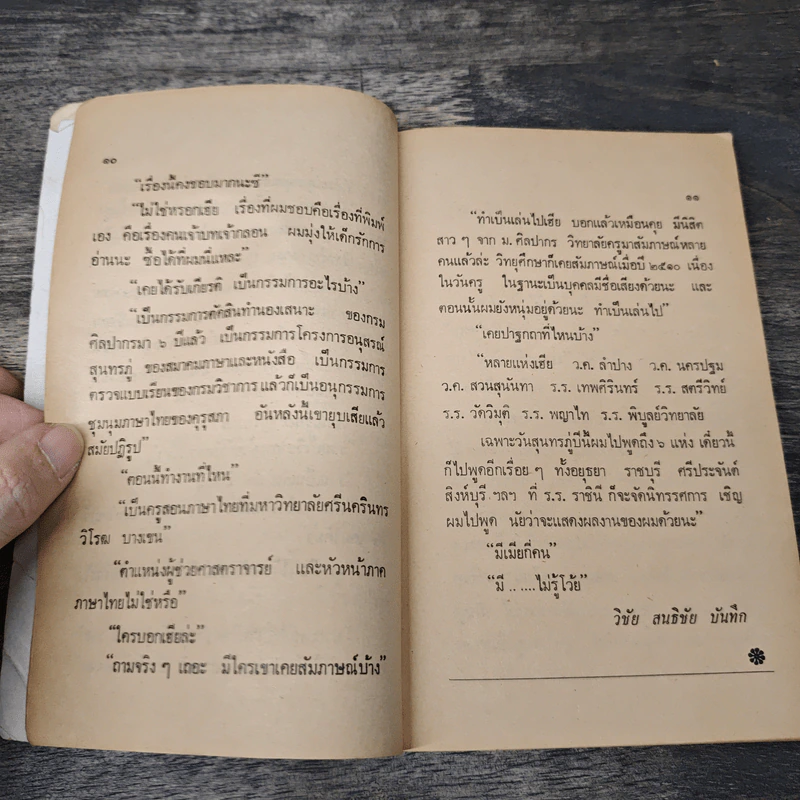 ๑๐
“เรื่องนี้คงชอบมากนะซี”
“ไม่ใช่หรอกเฮีย เรื่องที่ผมชอบคือเรื่องที่พิมพ์
เอง คือเรื่องคนเจ้าบทเจ้ากลอน ผมมุ่งให้เด็กรักการ
อ่านนะ ซื้อได้ที่ผมนี่แหละ”
“เคยได้รับเกียรติ เป็นกรรมการอะไรบ้าง”
“เป็นกรรมการตัดสินทำนองเสนาะ ของกรม
ศิลปากรมา ๖ ปีแล้ว เป็นกรรมการโครงการอนุสรณ์
สุนทรภู่ ของสมาคมภาษาและหนังสือ เป็นกรรมการ
ตรวจแบบเรียนของกรมวิชาการ แล้วก็เป็นอนุกรรมการ
ชุมนุมภาษาไทยของคุรุสภา อันหลังนี้เขายุบเสียแล้ว
สมัยปฏิรูป”
“ตอนนี้ทำงานที่ไหน”
“เป็นครูสอนภาษาไทยที่มหาวิทยาลัยศรีนครินทร
วิโรฒ บางเขน”
“ตำแหน่งผู้ช่วยศาสตราจารย์ และหัวหน้าภาค
ภาษาไทยไม่ใช่หรือ”
“ใครบอกเฮียล่ะ”
“ถามจริง ๆ เถอะ มีใครเขาเคยสัมภาษณ์บ้าง”
๑๑
“ทำเป็นเล่นไปเฮีย บอกแล้วเหมือนคุย มีนิสิต
สาว ๆ จาก ม.ศิลปากร วิทยาลัยครูมาสัมภาษณ์หลาย
คนแล้วล่ะ วิทยุศึกษาก็เคยสัมภาษณ์เมื่อปี ๒๕๑๐ เนื่อง
ในวันครู ในฐานะเป็นบุคคลมีชื่อเสียงด้วยนะ และ
ตอนนั้นผมยังหนุ่มอยู่ด้วยนะ ทำเป็นเล่นไป”
“เคยปาฐกถาที่ไหนบ้าง”
“หลายแห่งเฮีย ว.ค. ลำปาง ว.ค. นครปฐม
ว.ค. สวนสุนันทา ร.ร. เทพศิรินทร์ ร.ร. สตรีวิทย์
ร.ร. วัดวิมุติ ร.ร. พญาไท ร.ร. พิบูลย์วิทยาลัย
เฉพาะวันสุนทรภู่ปีนี้ผมไปพูดถึง ๖ แห่ง เดี๋ยวนี้
ก็ไปพูดอีกเรื่อย ๆ ทั้งอยุธยา ราชบุรี ศรีประจันต์
สิงห์บุรี ฯลฯ ที่ ร.ร. ราชินี ก็จะจัดนิทรรศการ เชิญ
ผมไปพูด นัยว่าจะแสดงผลงานของผมด้วยนะ”
“มีเมียกี่คน”
“มี .. ....ไม่รู้โว้ย”
วิชัย สนธิชัย บันทึก